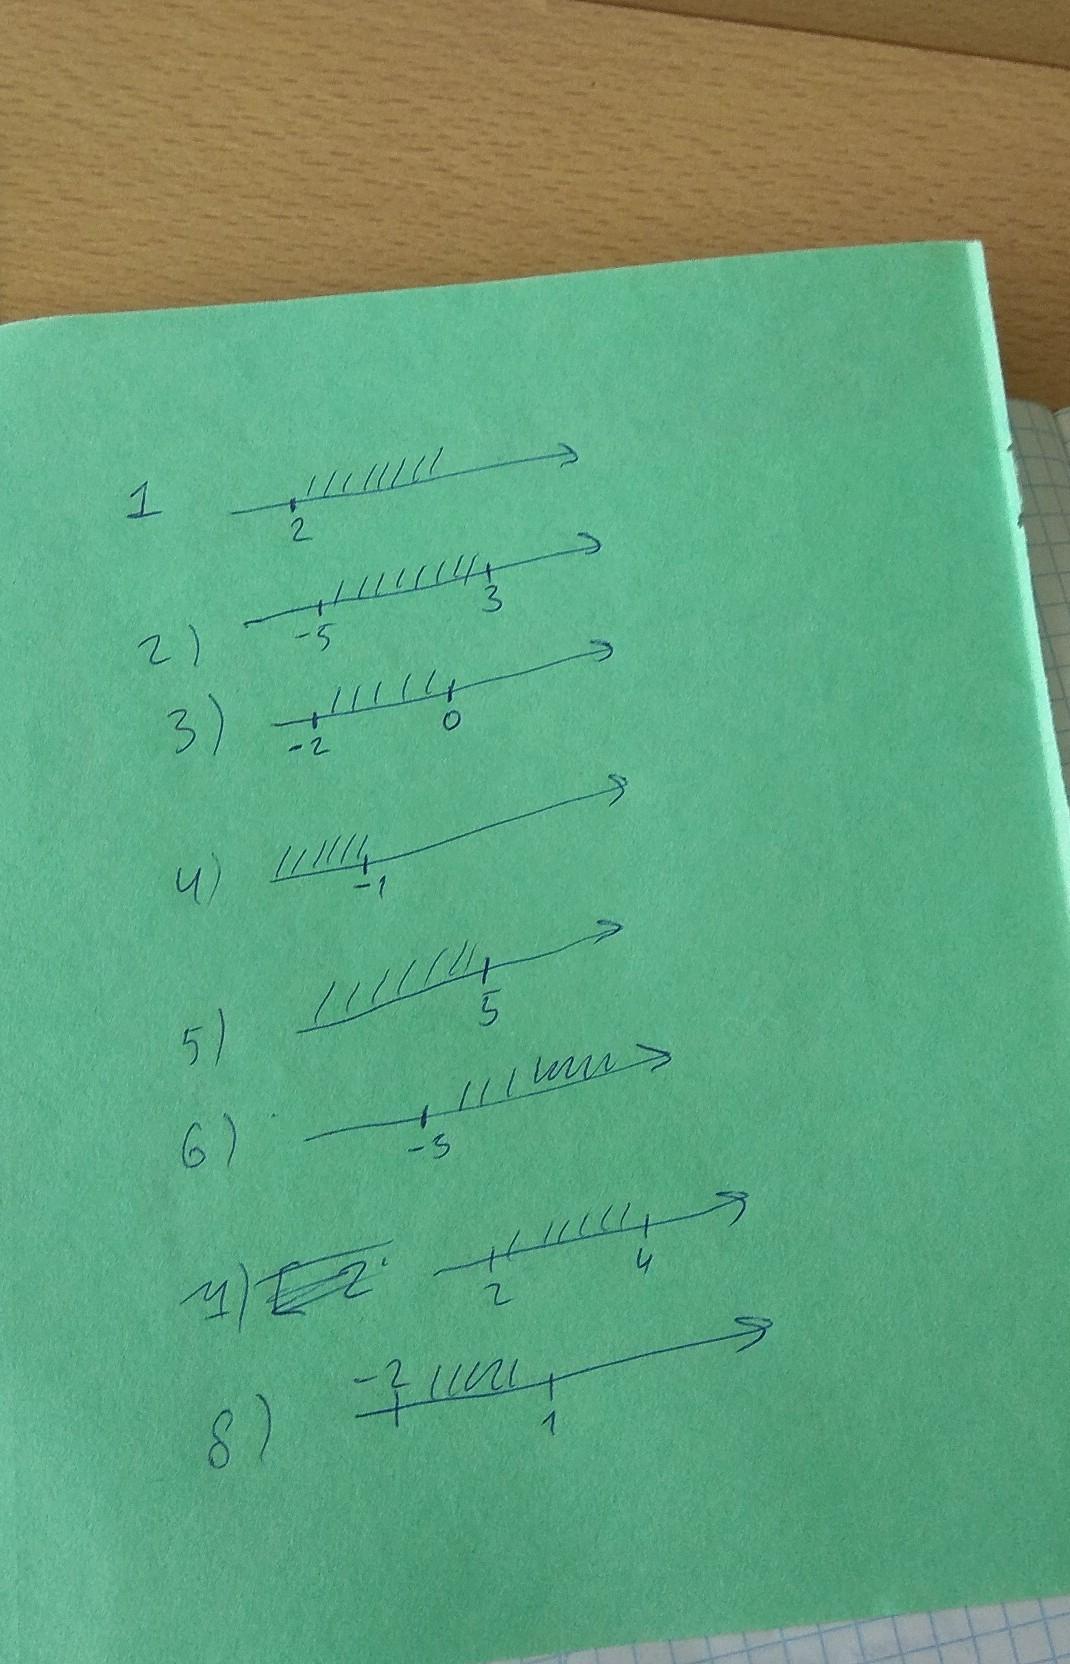 1 2
2) -5 3
3) -2 0
4) -1
5) 5
6) -3
7) 2 4
8) -2 1